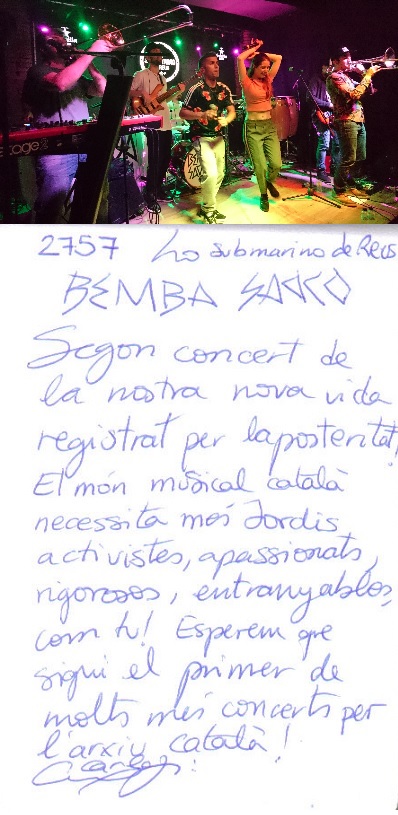 BEMBA SAOCO
2757 Lo submarino de Reus
BEMBA SAOCO
Segon concert de
la nostra nova vida
registrat per la posteritat!
El món musical català
necessita més Jordis,
activistes, apassionats,
rigorosos, entranyables,
com tu! Esperem que
sigui el primer de
molts més concerts per
l'arxiu català!